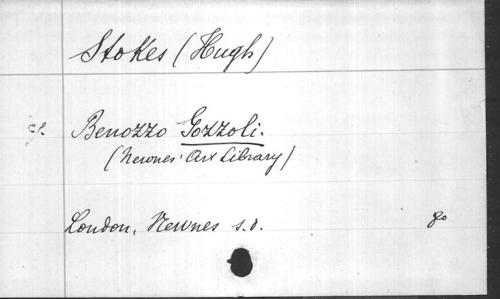 Stokes (Hugh)
cf. Benozzo Gozzoli.
(Newnes' Art Library)
London, Newnes s.d. 8o